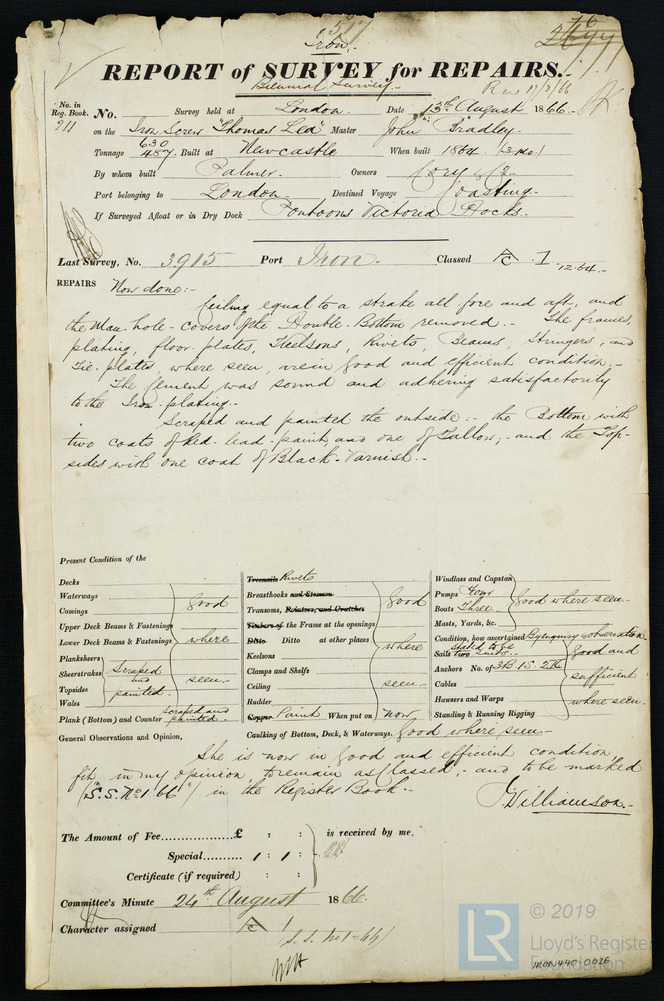 527
Iron.
REPORT of SURVEY for REPAIRS.
Biennial Survey.
Rec 17/8/66
No. in Reg. Book.
211
No. Survey held at London Date 13th August 1866
on the Iron Screw "Thomas Lea" Master John Bradley.
Tonnage 630 487. Built at Newcastle When built 1864. (3 mo.)
By whom built Palmer. Owners Cory & Co
Port belonging to London Destined Voyage Coasting.
If Surveyed Afloat or in Dry Dock Pontoons Victoria Docks.
Last Survey, No. 3915 Port Iron. Classed A 1 12.64.
REPAIRS Now done:-
Ceiling equal to a strake all fore and aft, and
the Man hole-covers of the Double-Bottom removed.- The frames,
plating, floor-plates, Keelsons, Rivets, Beams, Stringers, and
Tie-plates, where seen, are in good and efficient condition.-
The Cement was sound and adhering satisfactorily
to the Iron-plating.-
Scraped and painted the outside:- the Bottom with
two coats of Red-lead-paint, and one of Tallow;- and the Top-
sides with one coat of Black-Varnish.-
Present Condition of the
Decks
Waterways
Comings
Upper Deck Beams & Fastenings
Lower Deck Beams & Fastenings
good where seen-
Planksheers
Sheerstrakes
Topsides
Wales
Scraped and painted-
Plank (Bottom) and Counter Scraped and painted-
General Observations and Opinion,
Treenails Rivets
Breasthooks and Stemson
Transoms, Pointers, and Crutches
Timbers of the Frame at the openings
Ditto Ditto at other places
Keelsons
Clamps and Shelfs
Ceiling
Rudder
good where seen-
Copper Paint When put on now
Caulking of Bottom, Deck, & Waterways. Good where seen-
Windlass and Capstan
Pumps Four
Boats Three
Masts, Yards, &c.
good where seen-
Condition, how ascertained By enquiry & observation
Sails stated to be two suits
Anchors No. of 3 B. 1 S. 2 K
Cables
Hawsers and Warps
Standing & Running Rigging
good and sufficient where seen-
She is now in good and efficient condition,
fit, in my opinion, to remain as Classed,- and to be marked
("S.S. No1 66") in the Register Book.-
J Williamson.-
The Amount of Fee £ : : is received by me,
Special 1 : 1 :
Certificate (if required) : :
Committee's Minute 24th August 1866.
Character assigned A 1
S.S. No 1-66
© 2019
LR
Lloyd's Register
Foundation
IRON440-0026